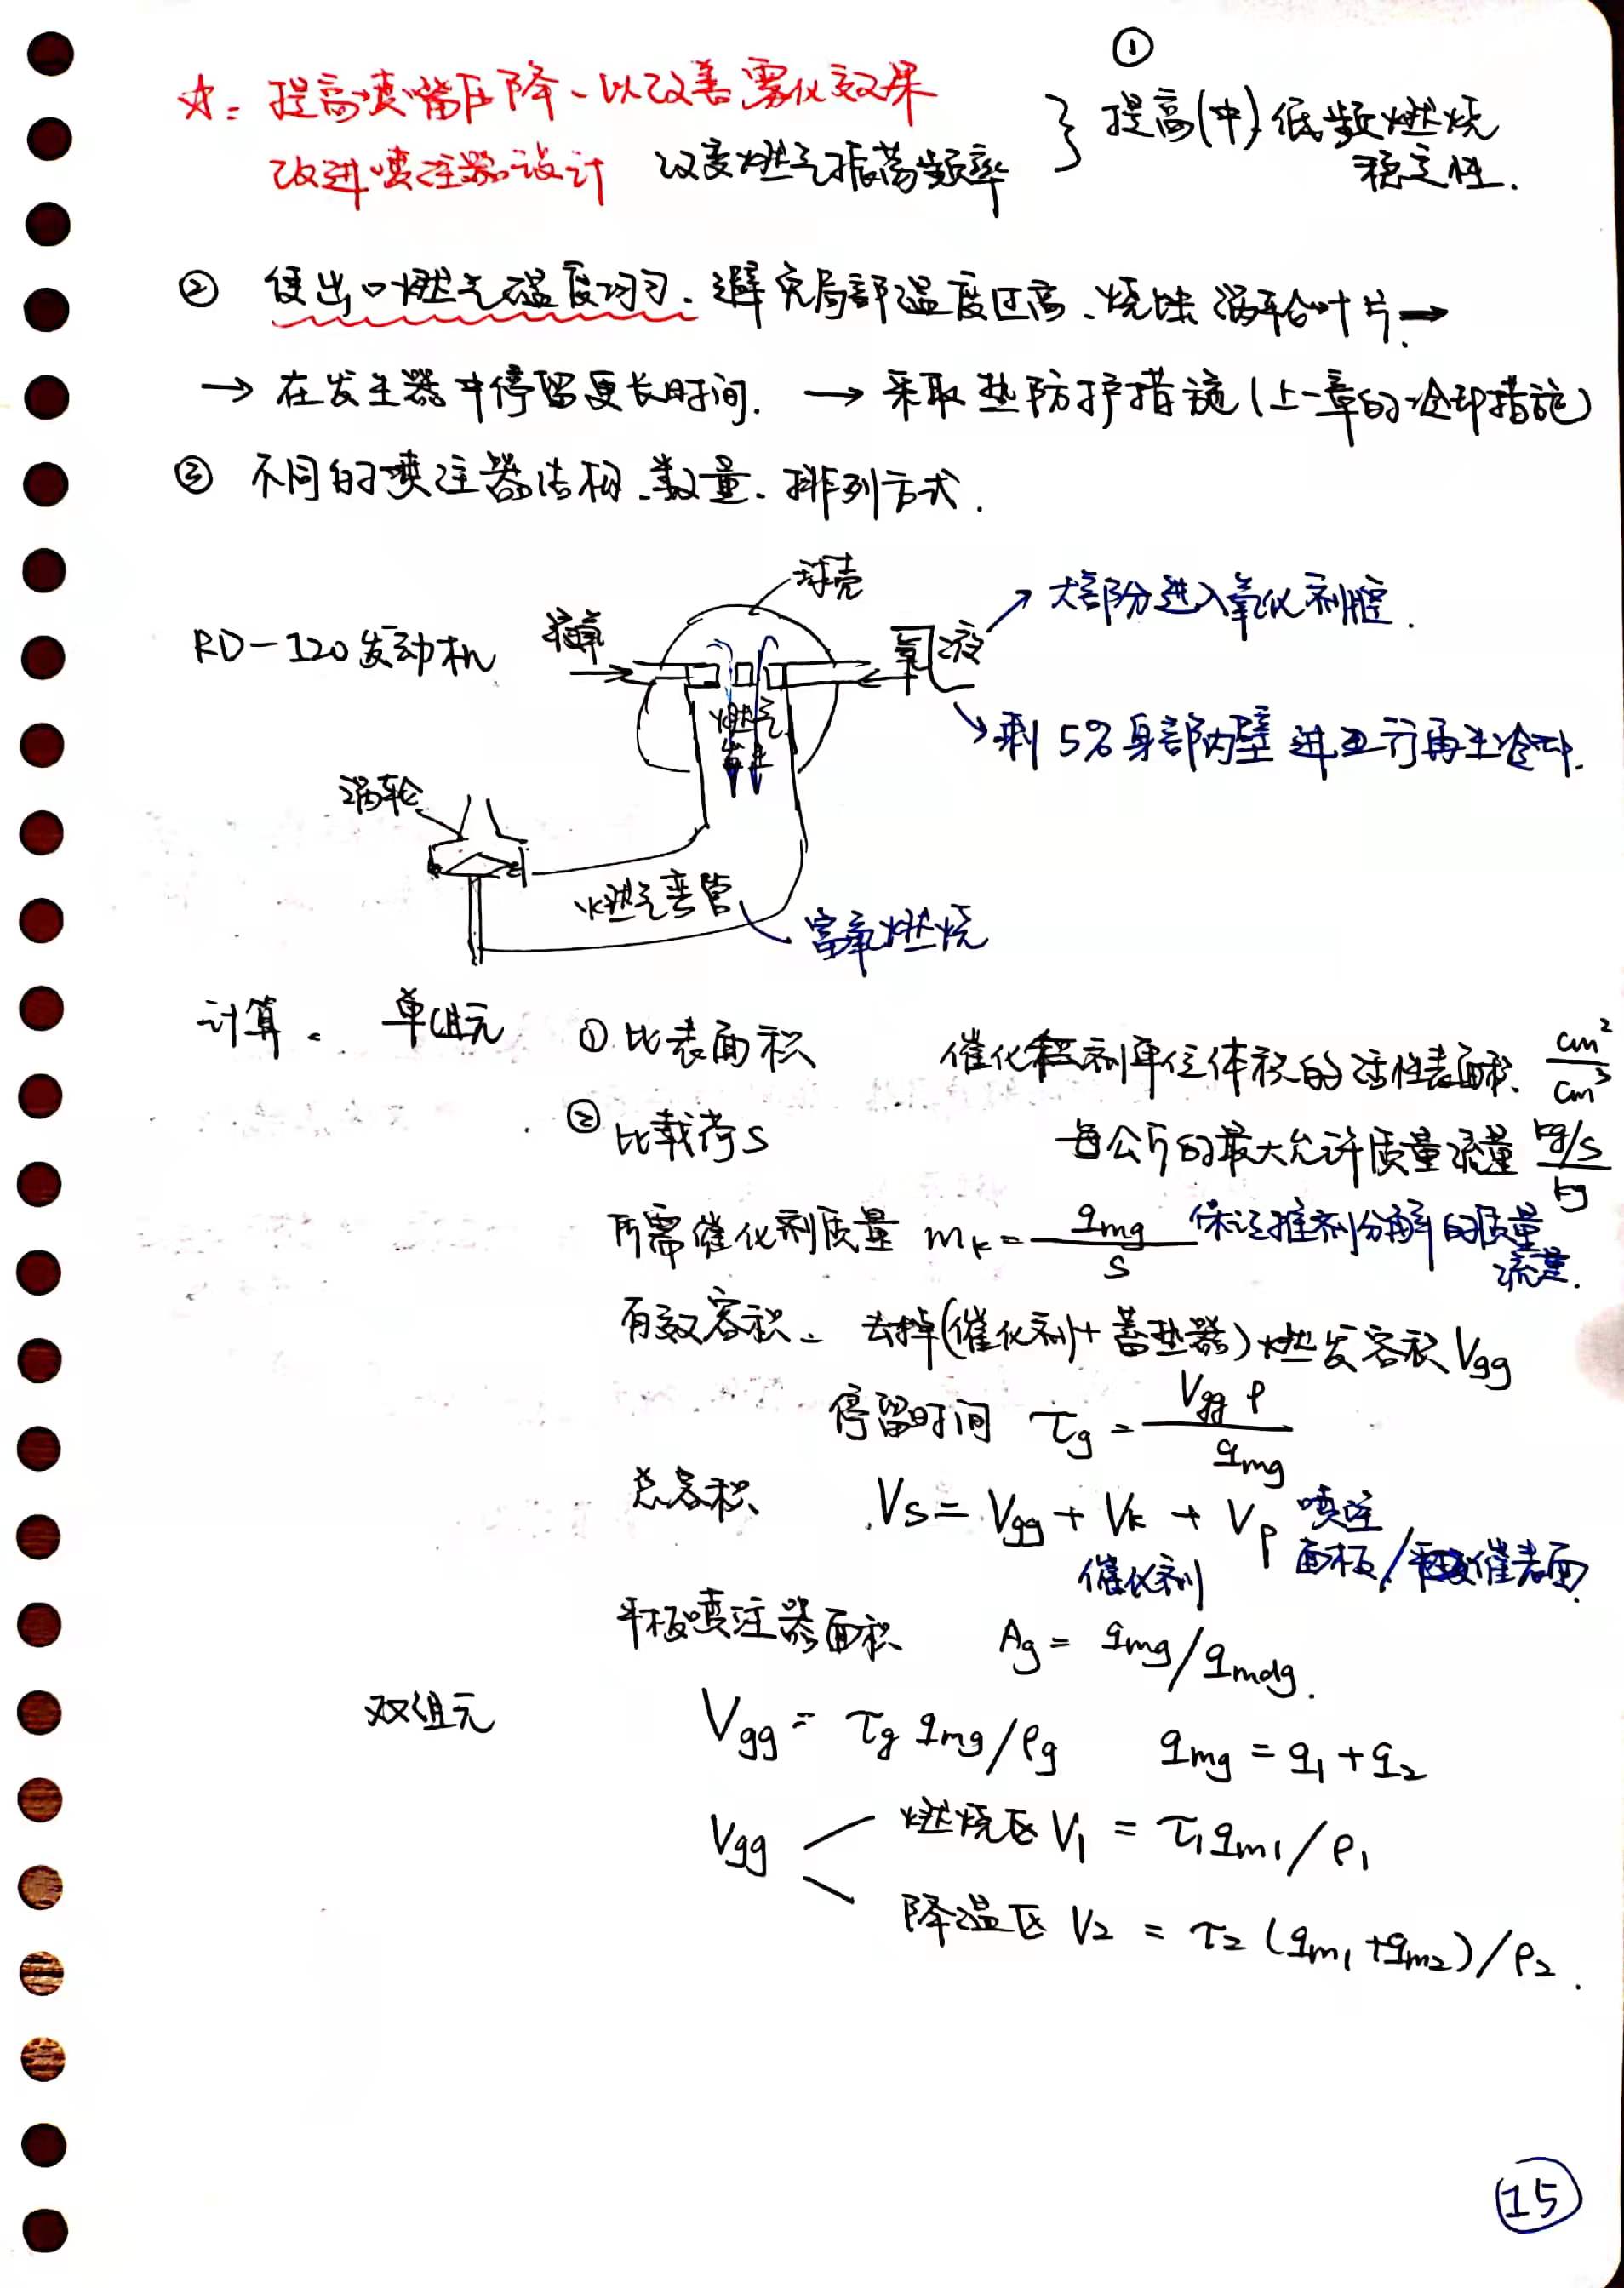 ①
☆: 提高喷嘴压降、以改善雾化效果
改进喷注器设计 改变燃气振荡频率 } 提高(中)低频燃烧
稳定性.
② 使出口燃气温度均匀. 避免局部温度过高、烧蚀涡轮叶片. →
→ 在发生器中停留更长时间. → 采取热防护措施(上一章的冷却措施)
③ 不同的喷注器结构、数量、排列方式.
球壳
RD-120发动机
液氧 → 大部分进入氧化剂腔.
→ 剩5%身部内壁进行再生冷却.
燃气
发生
涡轮
燃气弯管
富氧燃烧
计算. 单组元 ① 比表面积 催化剂单位体积的活性表面积. cm²/cm³
② 比载荷S 每公斤的最大允许质量流量 kg/s/kg
所需催化剂质量 mk = qmg/S 保证推剂分解的质量
流量.
有效容积. 去掉(催化剂+蓄热器)燃发容积 Vgg
停留时间 τg = Vgg ρ/qmg
总容积 Vs = Vgg + Vk + Vp 喷注
催化剂 面板/催表面
平板喷注器面积 Ag = qmg/qmdg.
双组元 Vgg = τg qmg/ρg qmg = q1 + q2
Vgg 燃烧区 V1 = τ1 qm1/ρ1
降温区 V2 = τ2 (qm1+qm2)/ρ2.
15